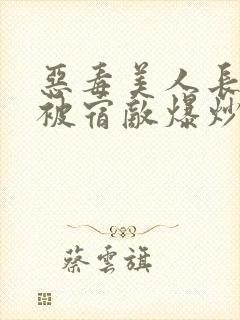 惡毒美人長
被宿敵爆炒
蔡雲旗